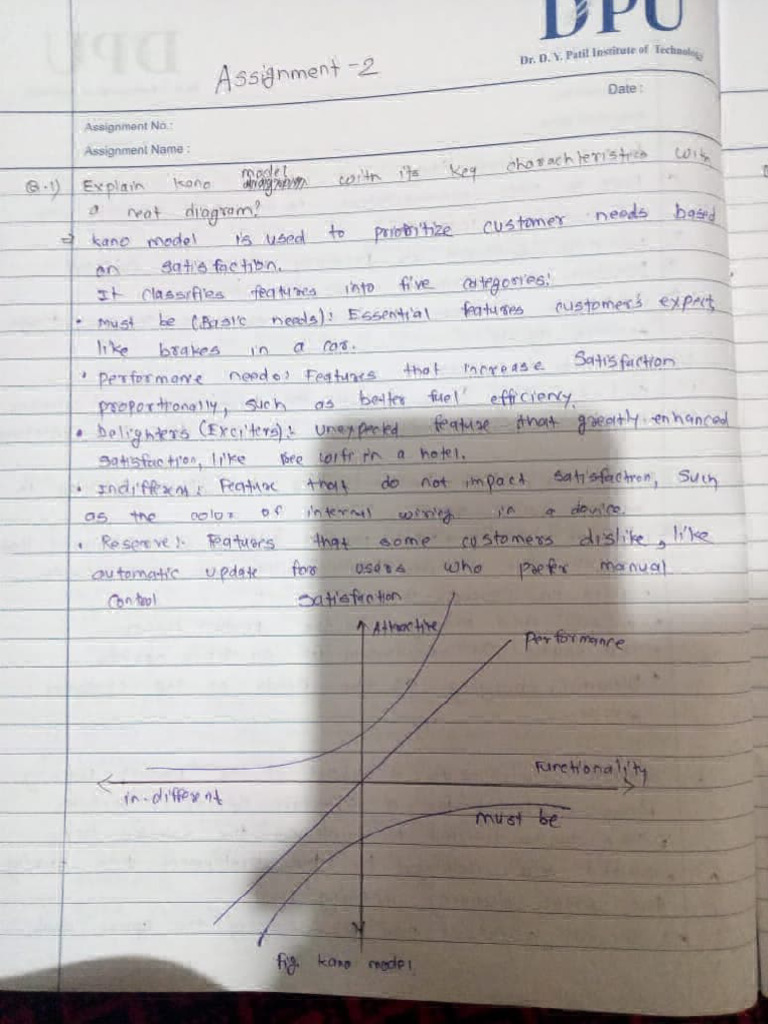 DPU
Dr. D. Y. Patil Institute of Technology
Assignment - 2
Date :
Assignment No.:
Assignment Name :
Q.1) Explain kano model with its key charachteristics with
a neat diagram?
⇒ kano model is used to prioritize customer needs based
on satisfaction.
It classifies features into five categories:
• must be (Basic needs): Essential features customer's expect,
like brakes in a car.
• performance needs: Features that increase satisfaction
proportionally, such as better fuel efficiency.
• Delighters (Exciters): unexpected feature that greatly enhanced
satisfaction, like free wifi in a hotel.
• Indifferent: Feature that do not impact satisfaction, such
as the color of internal wiring in a device.
• Reserve: Features that some customers dislike, like
automatic update for users who prefer manual
control
satisfaction
Attractive
performance
Functionality
in-different
must be
fig. kano model